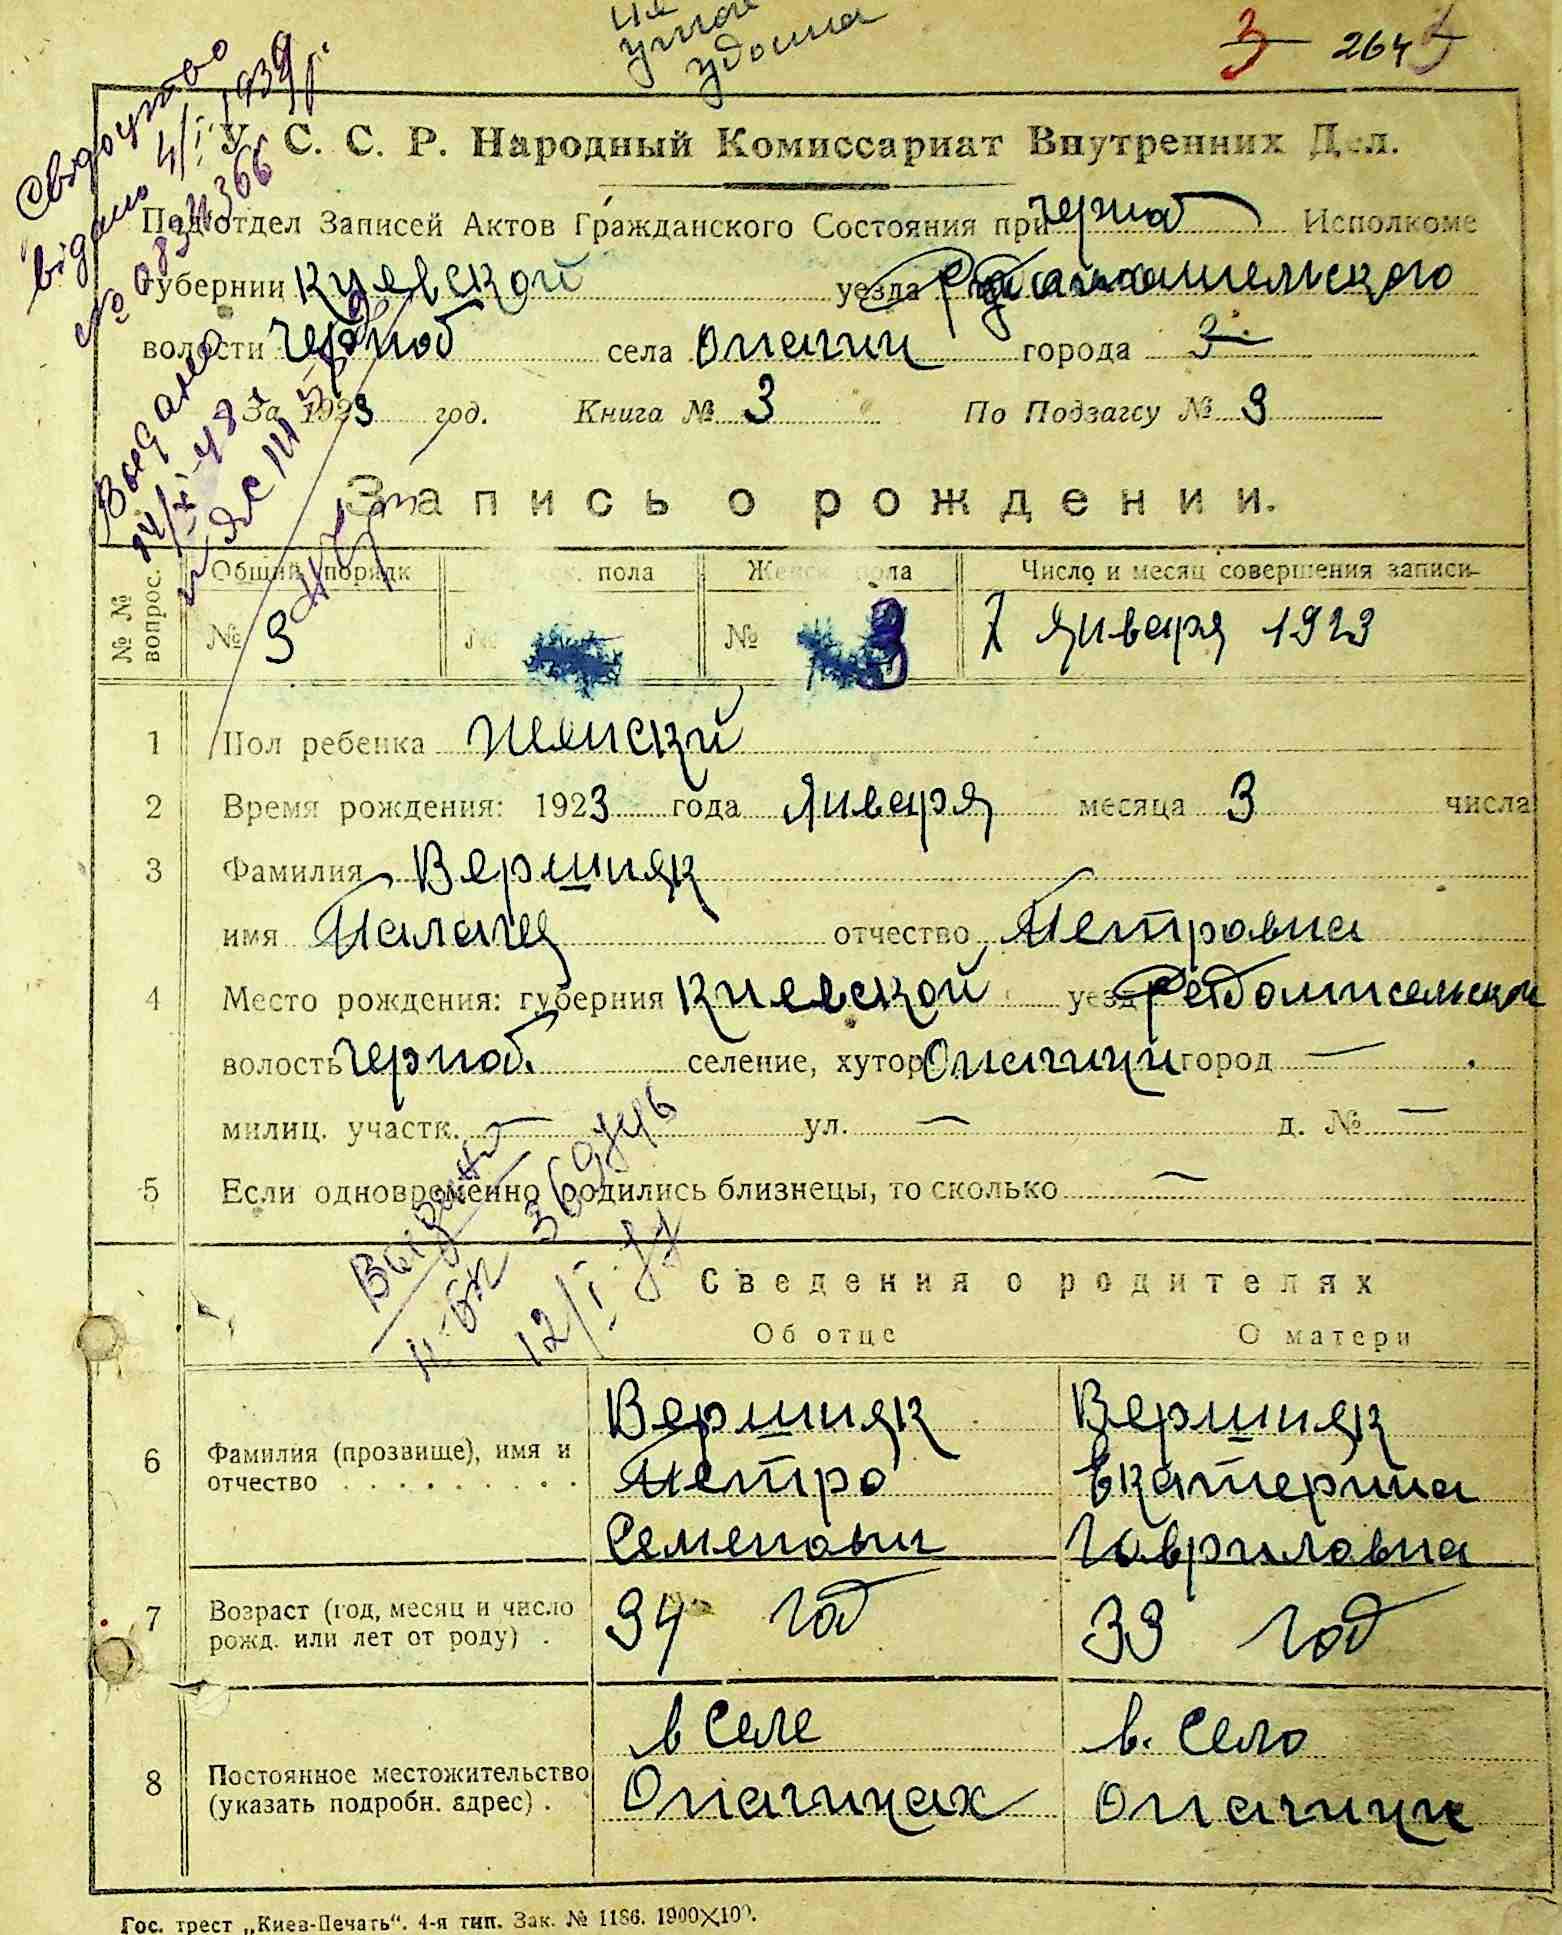 3 264
Свідоцтво
видано 4/I 1939 р.
У. С. С. Р. Народный Комиссариат Внутренних Дел.
Подотдел Записей Актов Гражданского Состояния при Черноб Исполкоме
губернии Киевской уезда
волости Черноб села Опачичи города
За 1923 год. Книга № 3 По Подзагсу № 3
Запись о рождении.
№ № вопрос. Общий порядк пола Женск. пола Число и месяц совершения записи
№ 3 № № 3 7 Января 1923
1 Пол ребенка Женский
2 Время рождения: 1923 года Января месяца 3 числа
3 Фамилия Вершняк
имя Палагея отчество Петровна
4 Место рождения: губерния Киевской уезд
волость Черноб. селение, хутор Опачичи город —
милиц. участк. — ул. — д. № —
5 Если одновременно родились близнецы, то сколько —
Выдано
12/I
Сведения о родителях
Об отце О матери
6 Фамилия (прозвище), имя и отчество Вершняк Петро Семенович Вершняк Екатерина Гавриловна
7 Возраст (год, месяц и число рожд. или лет от роду) . 34 год 33 год
8 Постоянное местожительство (указать подробн. адрес) . в селе Опачичах в. село Опачичи
Гос. трест „Киев-Печать“. 4-я тип. Зак. № 1186. 1900×100.